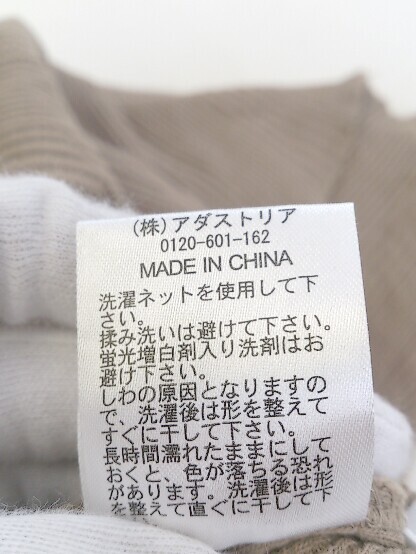 (株)アダストリア
0120-601-162
MADE IN CHINA
洗濯ネットを使用して下
さい。
揉み洗いは避けて下さい。
蛍光増白剤入り洗剤はお
避け下さい。
しわの原因となりますの
で、洗濯後は形を整えて
すぐに干して下さい。
長時間濡れたままにして
おくと、色が落ちる恐れ
があります。洗濯後は形
を整えて直ぐに干して下